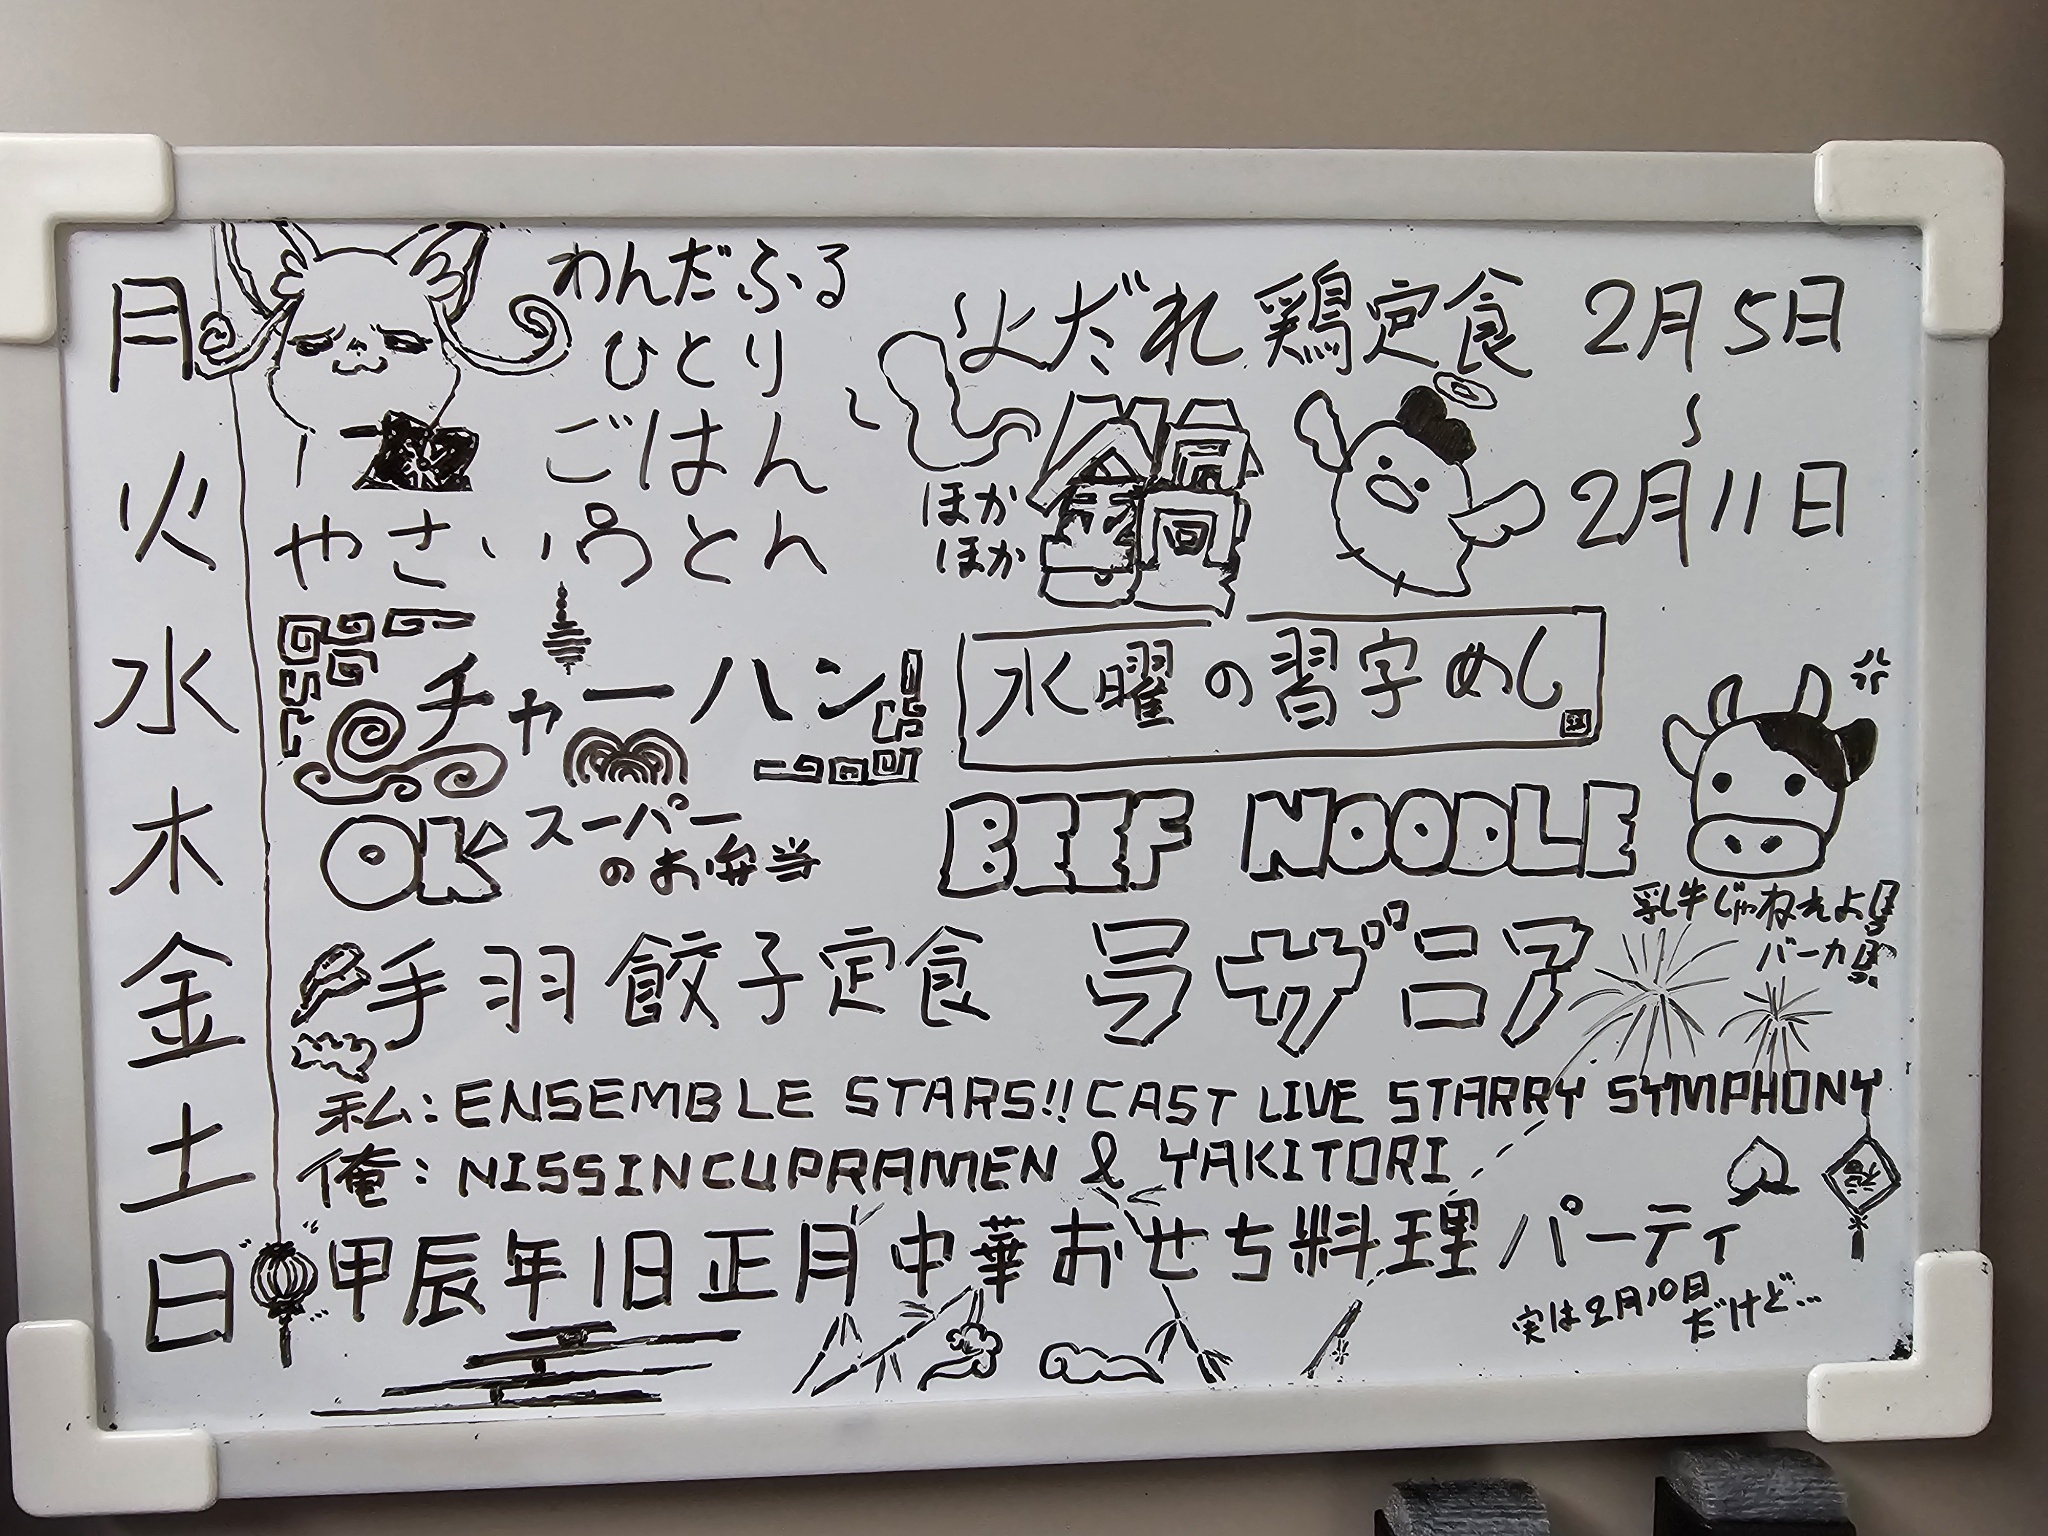 月
わんだふる
ひとり
ごはん
よだれ鶏定食
2月5日
〜
2月11日
火
やさいうどん
ほか
ほか
水
チャーハン
水曜の習字めし
木
OK スーパー
のお弁当
BEEF NOODLE
乳牛じゃねえよ!!
バーカ!!
金
手羽餃子定食
ラザニア
土
私:ENSEMBLE STARS!! CAST LIVE STARRY SYMPHONY
俺:NISSINCUPRAMEN & YAKITORI
福
日
甲辰年旧正月中華おせち料理パーティ
実は2月10日
だけど...